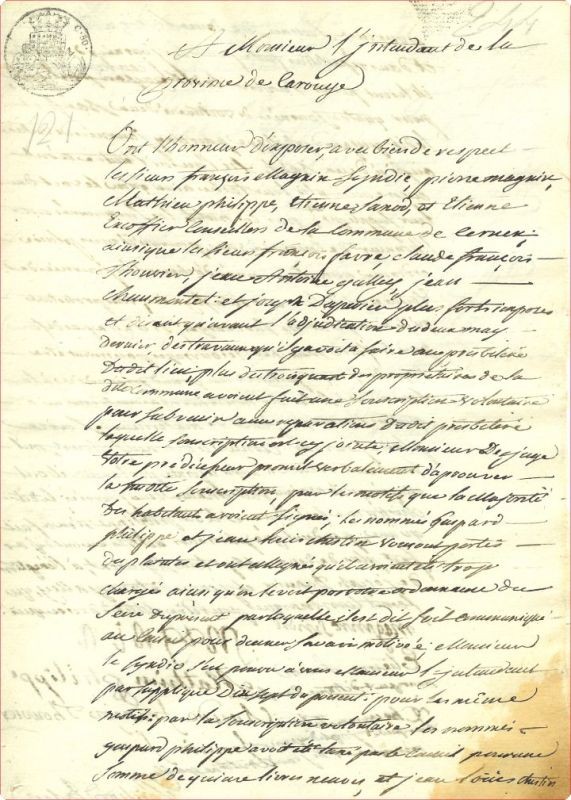 A Monsieur l'jntendant de la
Province de Carouge
121
Ont l'honneur d'exposer, avec bien de respect
les sieurs françois Magnin syndic, pierre magnin,
Mathieu philippe, Etienne Janod, et Etienne
Excoffier Conseillers de la Commune de Cernex;
ainsique les sieurs francois favre, claude françois
Thouvier, jean Antoine gulley, jean
Chaumontel et joseph Dupurier plus forts imposés
et disant qu'avant l'adjudication du deux may
dernier, des travaux qu'il y avoit a faire au presbitère
Dudit lieu plus des trois quart des propriétaires de la
dite Commune avoient fait une Souscription volontaire
pour subvenir aux reparations dudit presbiterè
laquelle souscription est cy jointe, Monsieur
Votre prédécesseur promit verbalement d'aprouver
la susditte souscription, par les motifs que la Majorité
Des habitants avoient signés; les nommés gaspard
philippe et jean Louis chestin se sont portés
du plaintes et ont allegués qu'ils avoient été trop
chargés ainsi qu'on le voit par votre ordonnance du
par laquelle il est dit soit communiqué
au pour donner son avis motivé; Monsieur
le syndic à vous Monsieur l'jntendant
par supplique Dix sept du pour les même
motifs; par la souscription volontaire les nommés
gaspard philippe avoit été taxé par le Conseil pour une
somme de quinze livres neuves, et jean Louis chestin